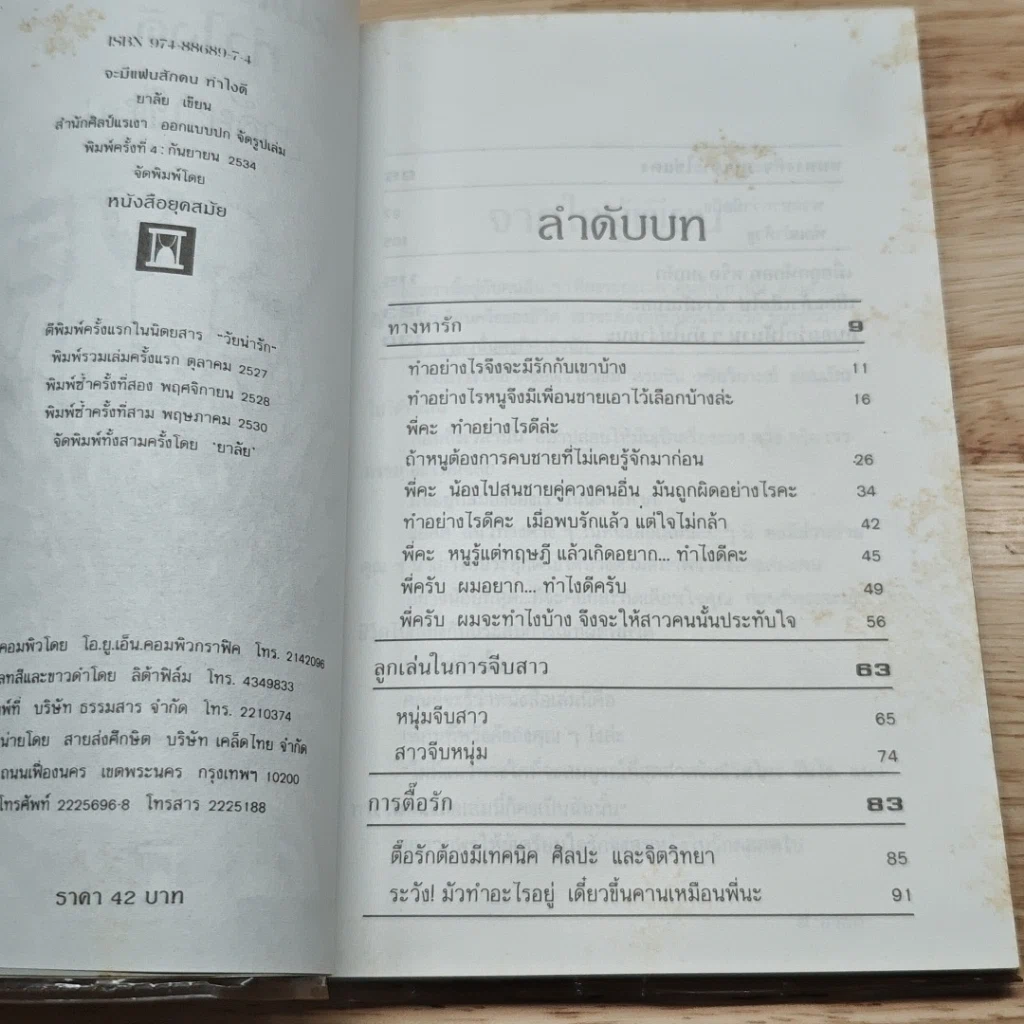 ISBN 974-88689-7-4
จะมีแฟนสักคน ทำไงดี
ยาลัย เขียน
สำนักศิลป์แรเงา ออกแบบปก จัดรูปเล่ม
พิมพ์ครั้งที่ 4 : กันยายน 2534
จัดพิมพ์โดย
หนังสือยุคสมัย
ตีพิมพ์ครั้งแรกในนิตยสาร "วัยน่ารัก"
พิมพ์รวมเล่มครั้งแรก ตุลาคม 2527
พิมพ์ซ้ำครั้งที่สอง พฤศจิกายน 2528
พิมพ์ซ้ำครั้งที่สาม พฤษภาคม 2530
จัดพิมพ์ทั้งสามครั้งโดย 'ยาลัย'
คอมพิวโดย โอ.ยู.เอ็น.คอมพิวกราฟิค โทร. 2142096
ลิต้าฟิล์ม โทร. 4349833
บริษัท ธรรมสาร จำกัด โทร. 2210374
สายส่งศึกษิต บริษัท เคล็ดไทย จำกัด
ถนนเฟื่องนคร เขตพระนคร กรุงเทพฯ 10200
โทรศัพท์ 2225696-8 โทรสาร 2225188
ราคา 42 บาท
ลำดับบท
ทางหารัก 9
ทำอย่างไรจึงจะมีรักกับเขาบ้าง 11
ทำอย่างไรหนูจึงมีเพื่อนชายเอาไว้เลือกบ้างล่ะ 16
พี่คะ ทำอย่างไรดีล่ะ
ถ้าหนูต้องการคบชายที่ไม่เคยรู้จักมาก่อน 26
พี่คะ น้องไปสนชายคู่ควงคนอื่น มันถูกผิดอย่างไรคะ 34
ทำอย่างไรดีคะ เมื่อพบรักแล้ว แต่ใจไม่กล้า 42
พี่คะ หนูรู้แต่ทฤษฎี แล้วเกิดอยาก... ทำไงดีคะ 45
พี่ครับ ผมอยาก... ทำไงดีครับ 49
พี่ครับ ผมจะทำไงบ้าง จึงจะให้สาวคนนั้นประทับใจ 56
ลูกเล่นในการจีบสาว 63
หนุ่มจีบสาว 65
สาวจีบหนุ่ม 74
การตื๊อรัก 83
ตื๊อรักต้องมีเทคนิค ศิลปะ และจิตวิทยา 85
ระวัง! มัวทำอะไรอยู่ เดี๋ยวขึ้นคานเหมือนพี่นะ 91